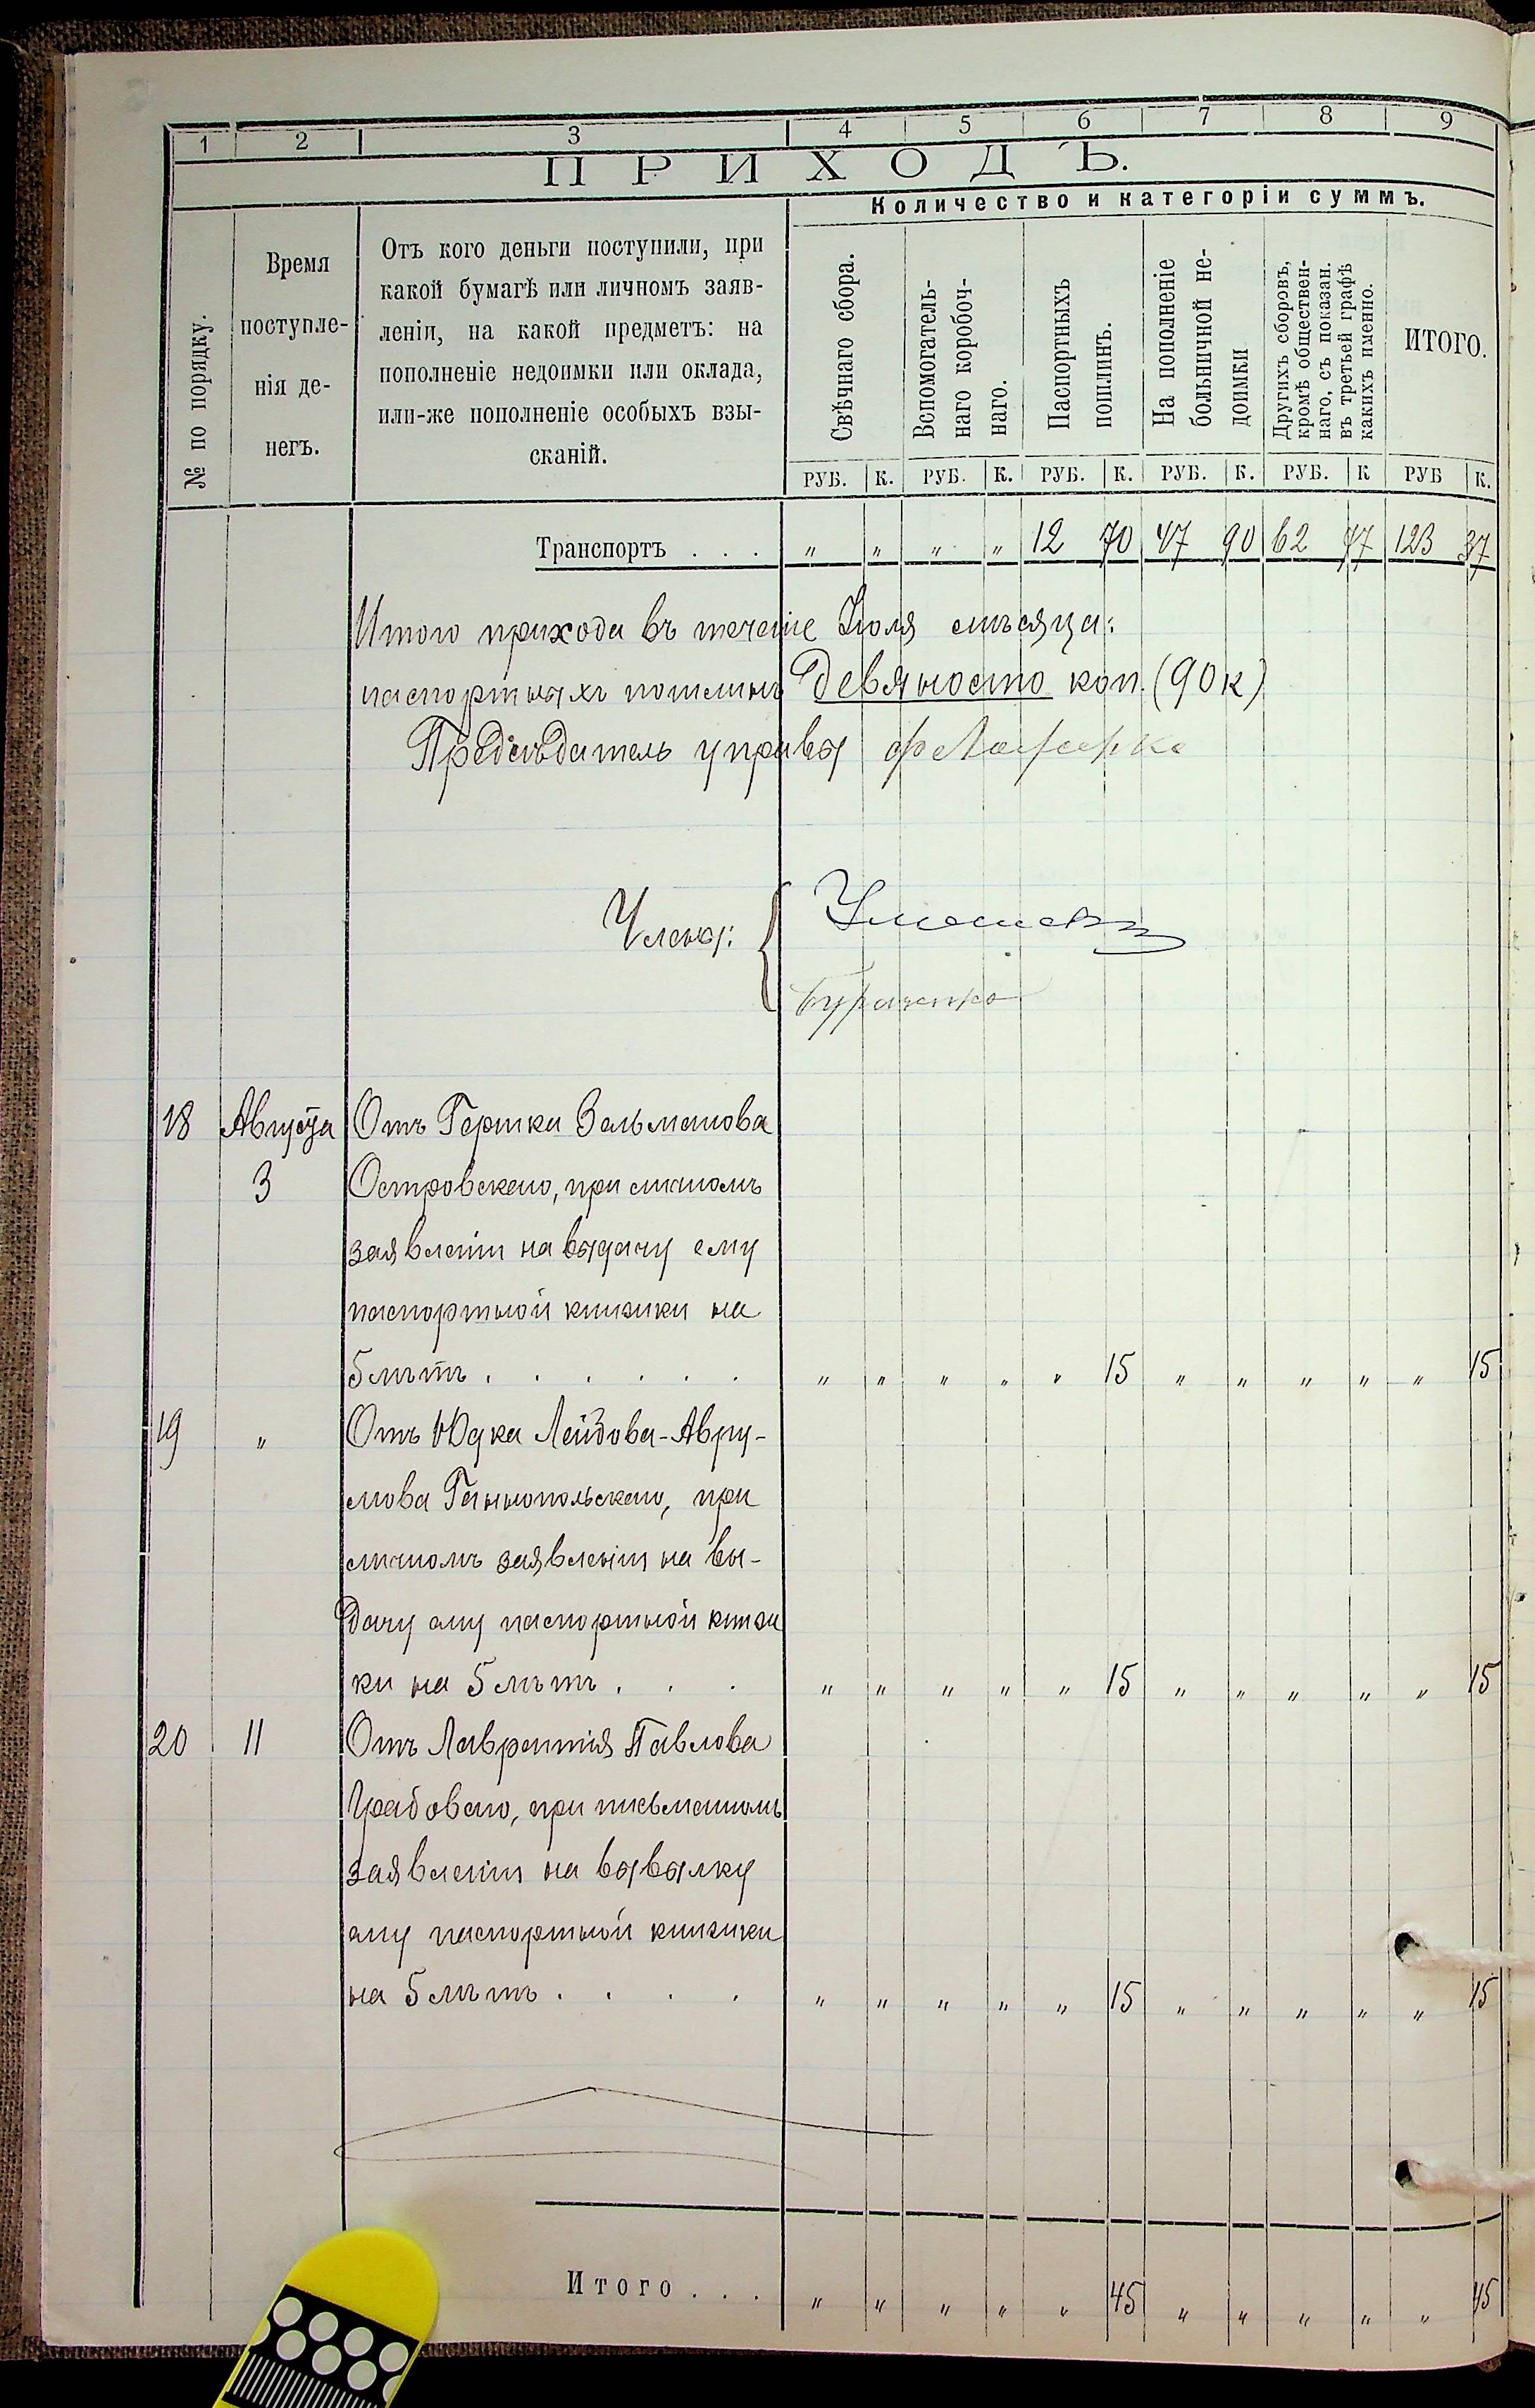 1 2 3 4 5 6 7 8 9
ПРИХОДЪ.
Количество и категоріи суммъ.
№ по порядку.
Время
поступле-
нія де-
негъ.
Отъ кого деньги поступили, при
какой бумагѣ или личномъ заяв-
леніи, на какой предметъ: на
пополненіе недоимки или оклада,
или-же пополненіе особыхъ взы-
сканій.
Свѣчнаго сбора.
Вспомогатель-
наго коробоч-
наго.
Паспортныхъ
пошлинъ.
На пополненіе
больничной не-
доимки
Другихъ сборовъ,
кромѣ обществен-
наго, съ показан.
въ третьей графѣ
какихъ именно.
ИТОГО.
РУБ. К. РУБ. К. РУБ. К. РУБ. К. РУБ. К РУБ К.
Транспортъ . . . „ „ „ „ 12 70 47 90 62 77 123 37
Итого прихода въ теченіе Іюля мѣсяца:
паспортныхъ пошлинъ девяносто коп. (90 к)
Предсѣдатель управы
Члены:
18 Августа Отъ Гершка Зельманова
3 Островскаго, при личномъ
заявленіи на выдачу ему
паспортной книжки на
5 лѣтъ . . . . . . „ „ „ „ „ 15 „ „ „ „ „ 15
19 „ Отъ Юдка Лейзова-Авру-
мова Ганнопольскаго, при
личномъ заявленіи на вы-
дачу ему паспортной книж
ки на 5 лѣтъ . . . „ „ „ „ „ 15 „ „ „ „ „ 15
20 11 Отъ Лаврентія Павлова
Грабоваго, при письменномъ
заявленіи на высылку
ему паспортной книжки
на 5 лѣтъ . . . . „ „ „ „ „ 15 „ „ „ „ „ 15
Итого . . . „ „ „ „ „ 45 „ „ „ „ „ 45